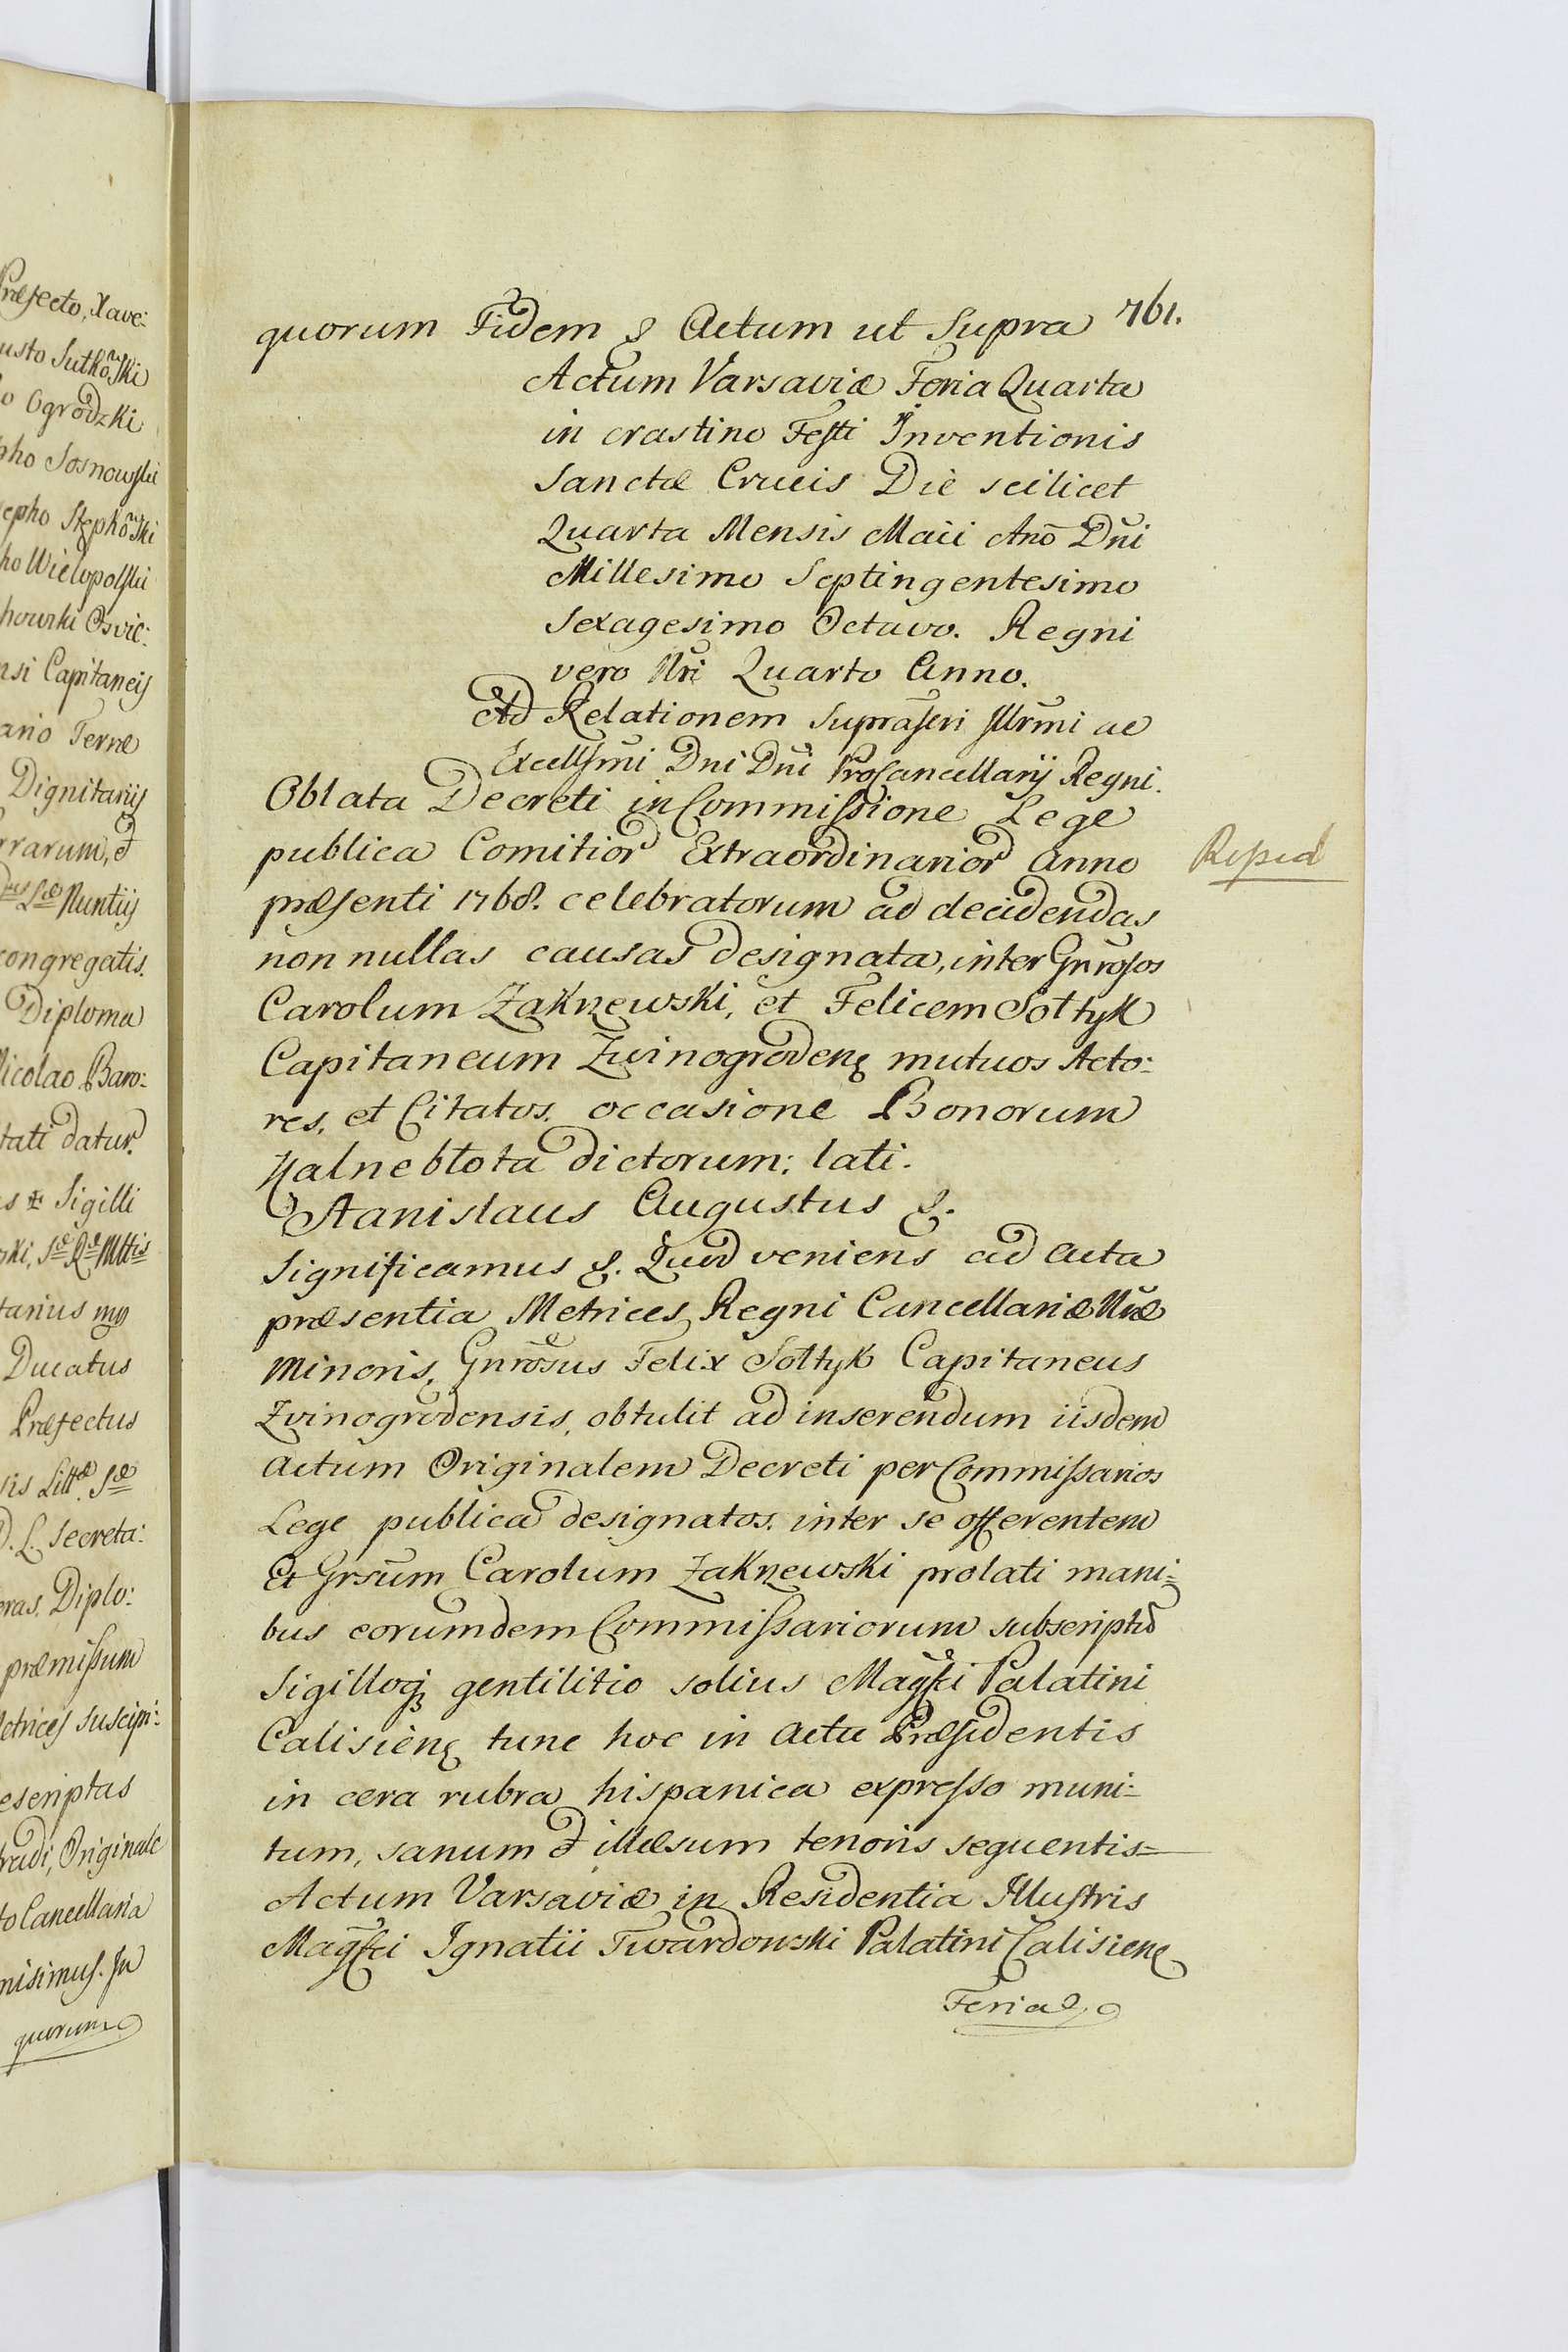 Præfecto, Xave:
usto Sutkoski
o Ogrodzki
pho Sosnowski
epho Stępkoski
ho Wielopolski
howski Osvie:
nsi Capitaneis
ario Terræ
Dignitariis
rrarum, et
Nuntiis
congregatis.
Diploma
Nicolao Baro:
tati datur.
Sigilli
ski, Sæ Ræ Mttis
tarius mp
Ducatus
Præfectus
sis Littæ. Sæ
D. L. Secreta:
eras. Diplo:
præmissum
Metrices suscipi:
escriptus
tradi, Originale
to Cancellaria
misimus. In
quorum
761.
quorum Fidem &. Actum ut Supra
Actum Varsaviæ Feria Quarta
in crastino Festi Inventionis
Sanctæ Crucis Die scilicet
Quarta Mensis Maii Anō Dn̄i
Millesimo Septingentesimo
Sexagesimo Octavo. Regni
vero Nr̄i Quarto Anno.
Ad Relationem Suprascri Illrm̄i ac
Excellsm̄i Dn̄i Dn̄i Procancellarij Regni.
Oblata Decreti in Commissione Lege
publica Comitior Extraordinarior anno
præsenti 1768. celebratorum ad decidendas
non nullas causas designata, inter Gn̄rosos
Carolum Zakrzewski, et Felicem Sołtyk
Capitaneum Zwinogrodenς mutuos Acto:
res, et Citatos. occasione Bonorum
Kalnebłota dictorum: lati.
Stanislaus Augustus &.
Significamus &. Quod veniens ad Acta
præsentia Metrices Regni Cancellariæ Nr̄æ
Minoris, Gn̄rosus Felix Sołtyk Capitaneus
Zwinogrodensis, obtulit ad inserendum iisdem
Actum Originalem Decreti per Commissarios
Lege publica designatos. inter se offerentem
Et Grsūm Carolum Zakrzewski prolati mani:
bus eorumdem Commissariorum subscriptū
Sigilloqȝ gentilitio solius Magfci Palatini
Calisienς tunc hoc in Actu Præsidentis
in cera rubra hispanica expresso muni:
tum, sanum et illæsum tenoris sequentis=
Actum Varsaviæ in Residentia Illustris
Magfci Ignatii Twardowski Palatini Calisienς
Feria